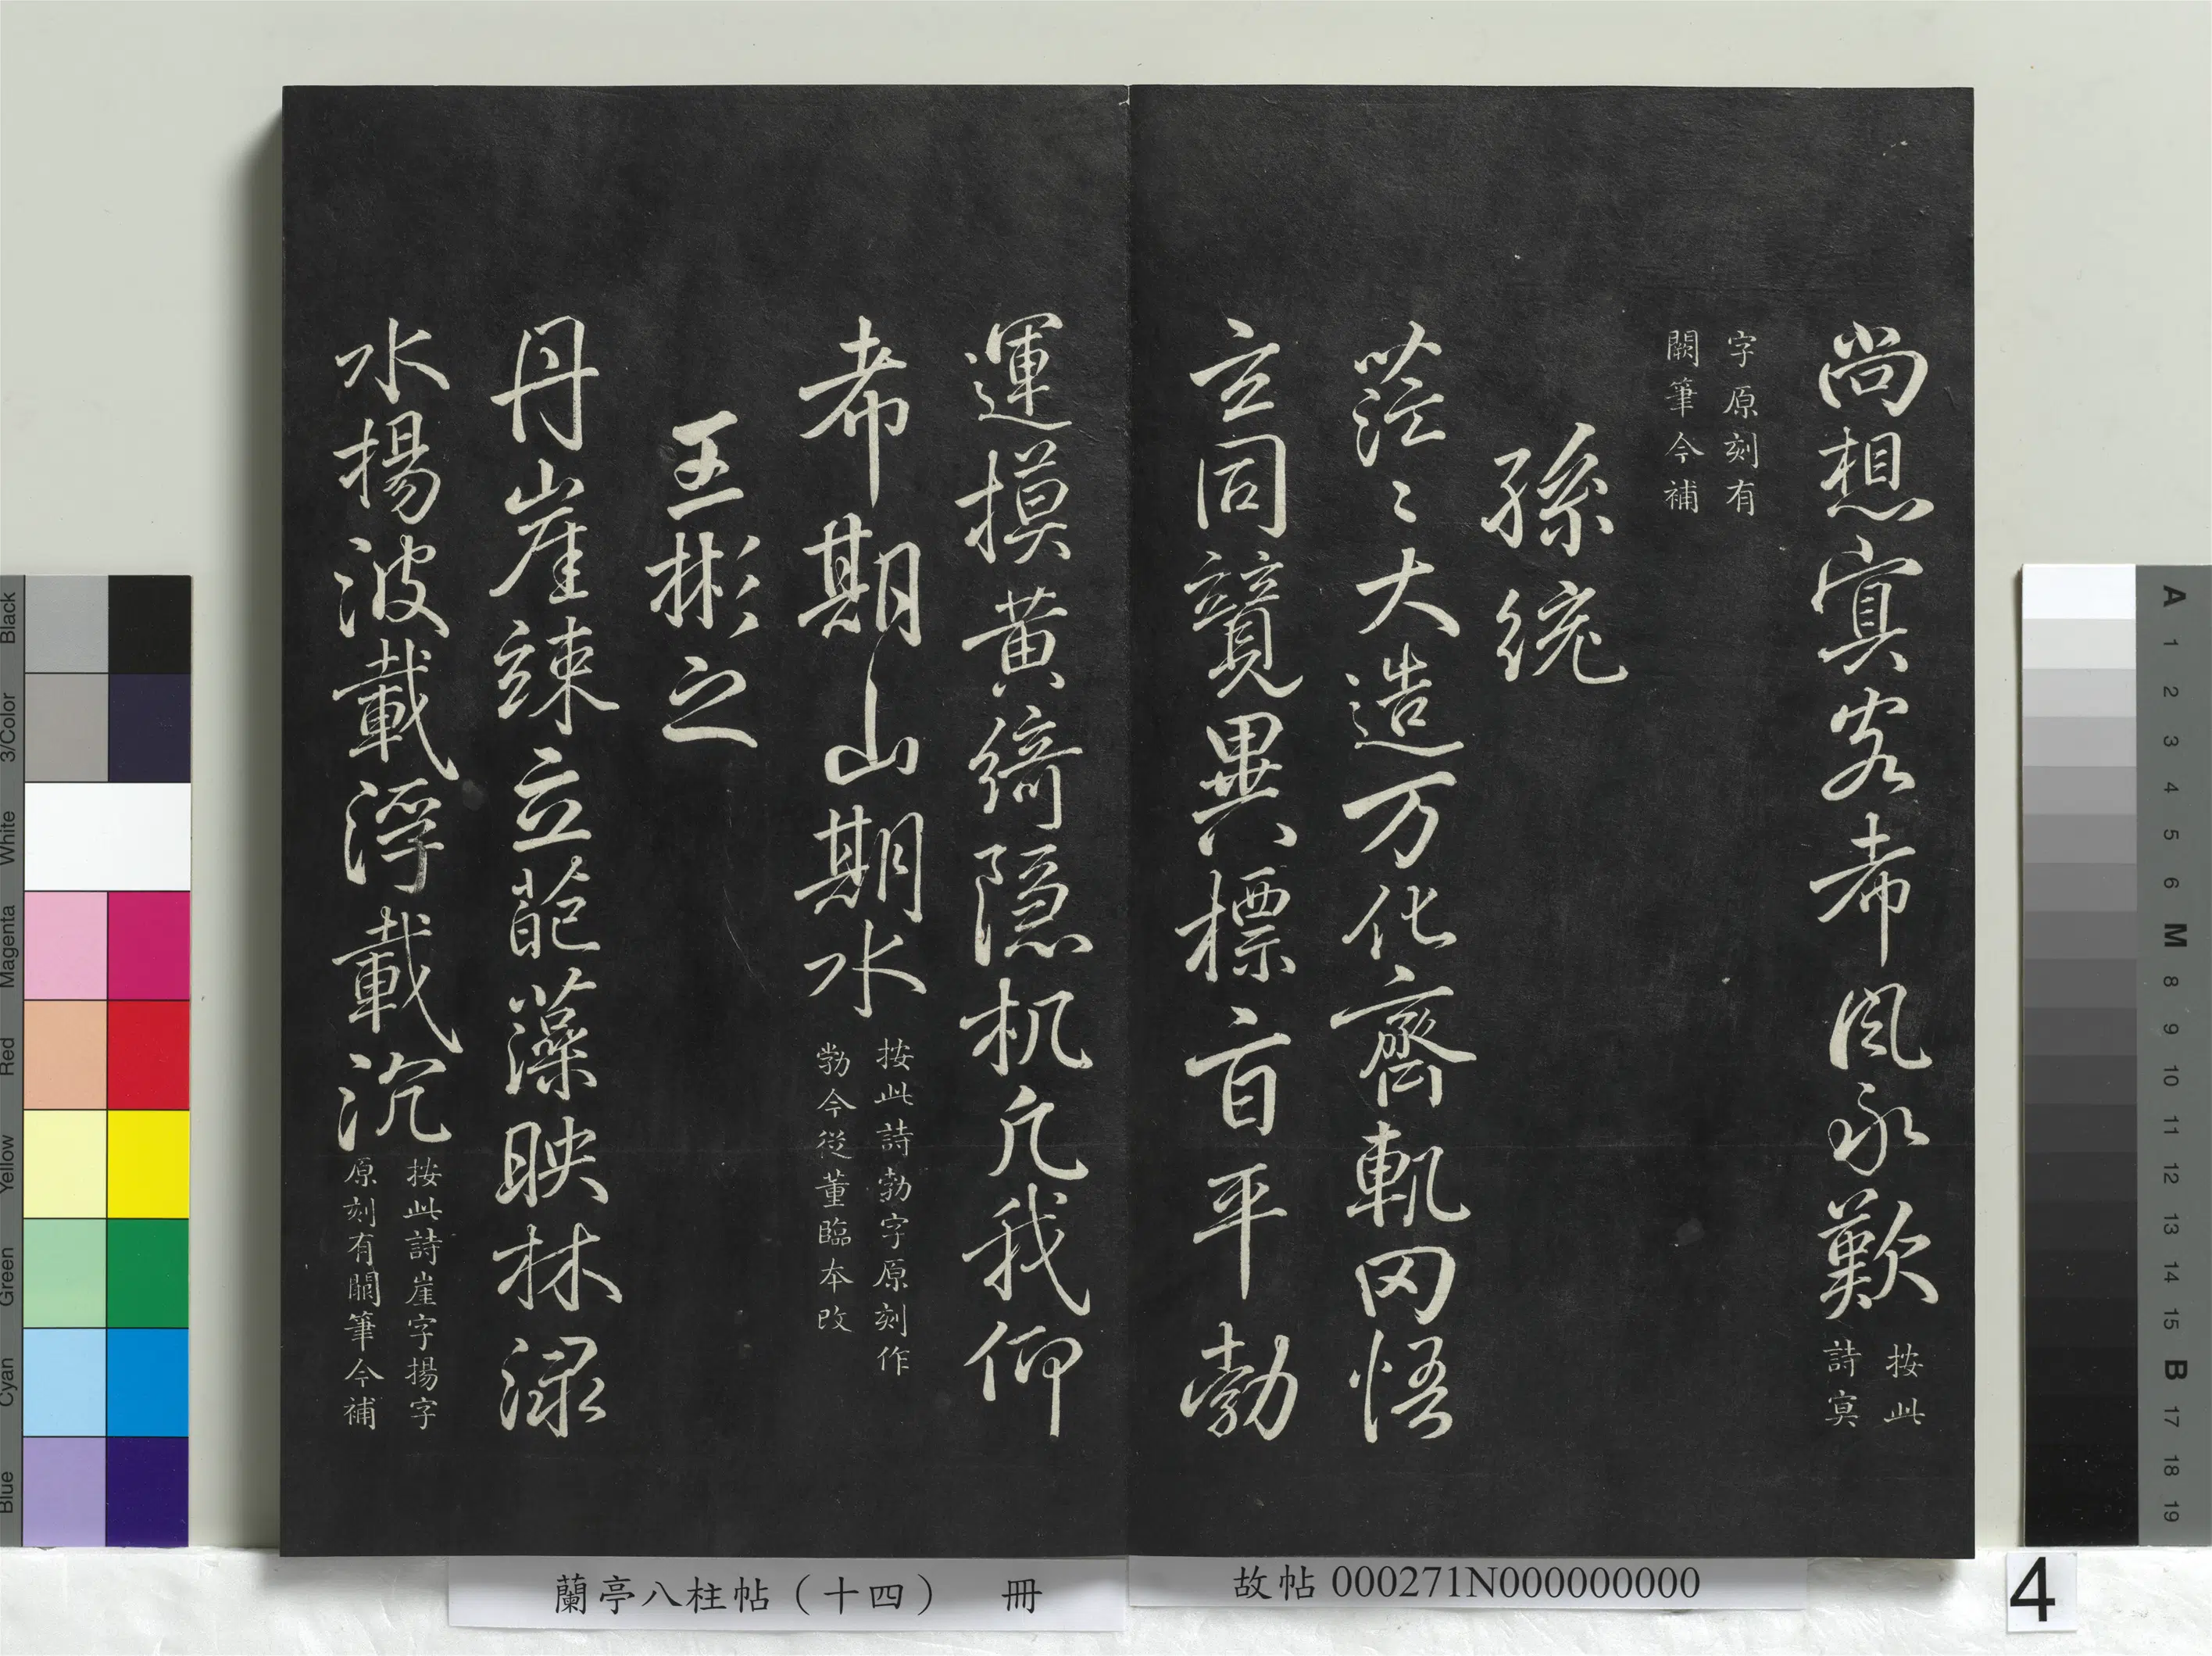 尚想冥客希風永歎
按此
詩冥
字原刻有
闕筆今補
孫統
茫〻大造万化齊軌罔悟
玄同競異標旨平勃
運摸黃綺隐机凡我仰
希期山期水
按此詩勃字原刻作
㔟今從董臨本改
王彬之
丹崖竦立葩藻映林渌
水揚波載浮載沉
按此詩崖字揚字
原刻有闕筆今補
蘭亭八柱帖（十四） 冊
故帖 000271N000000000
4
Black
3/Color
White
Magenta
Red
Yellow
Green
Cyan
Blue
A 1 2 3 4 5 6 M 8 9 10 11 12 13 14 15 B 17 18 19